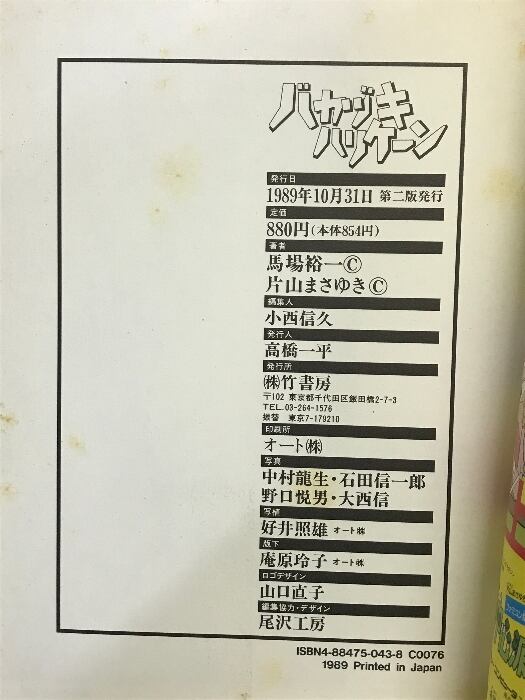 バカヅキ
ハリケーン
発行日
1989年10月31日 第二版発行
定価
880円(本体854円)
著者
馬場裕一©
片山まさゆき©
編集人
小西信久
発行人
高橋一平
発行所
㈱竹書房
〒102 東京都千代田区飯田橋2-7-3
TEL.03-264-1576
振替 東京7-179210
印刷所
オート㈱
写真
中村龍生・石田信一郎
野口悦男・大西信
写植
好井照雄 オート㈱
版下
庵原玲子 オート㈱
ロゴデザイン
山口直子
編集協力・デザイン
尾沢工房
ISBN4-88475-043-8 C0076
1989 Printed in Japan